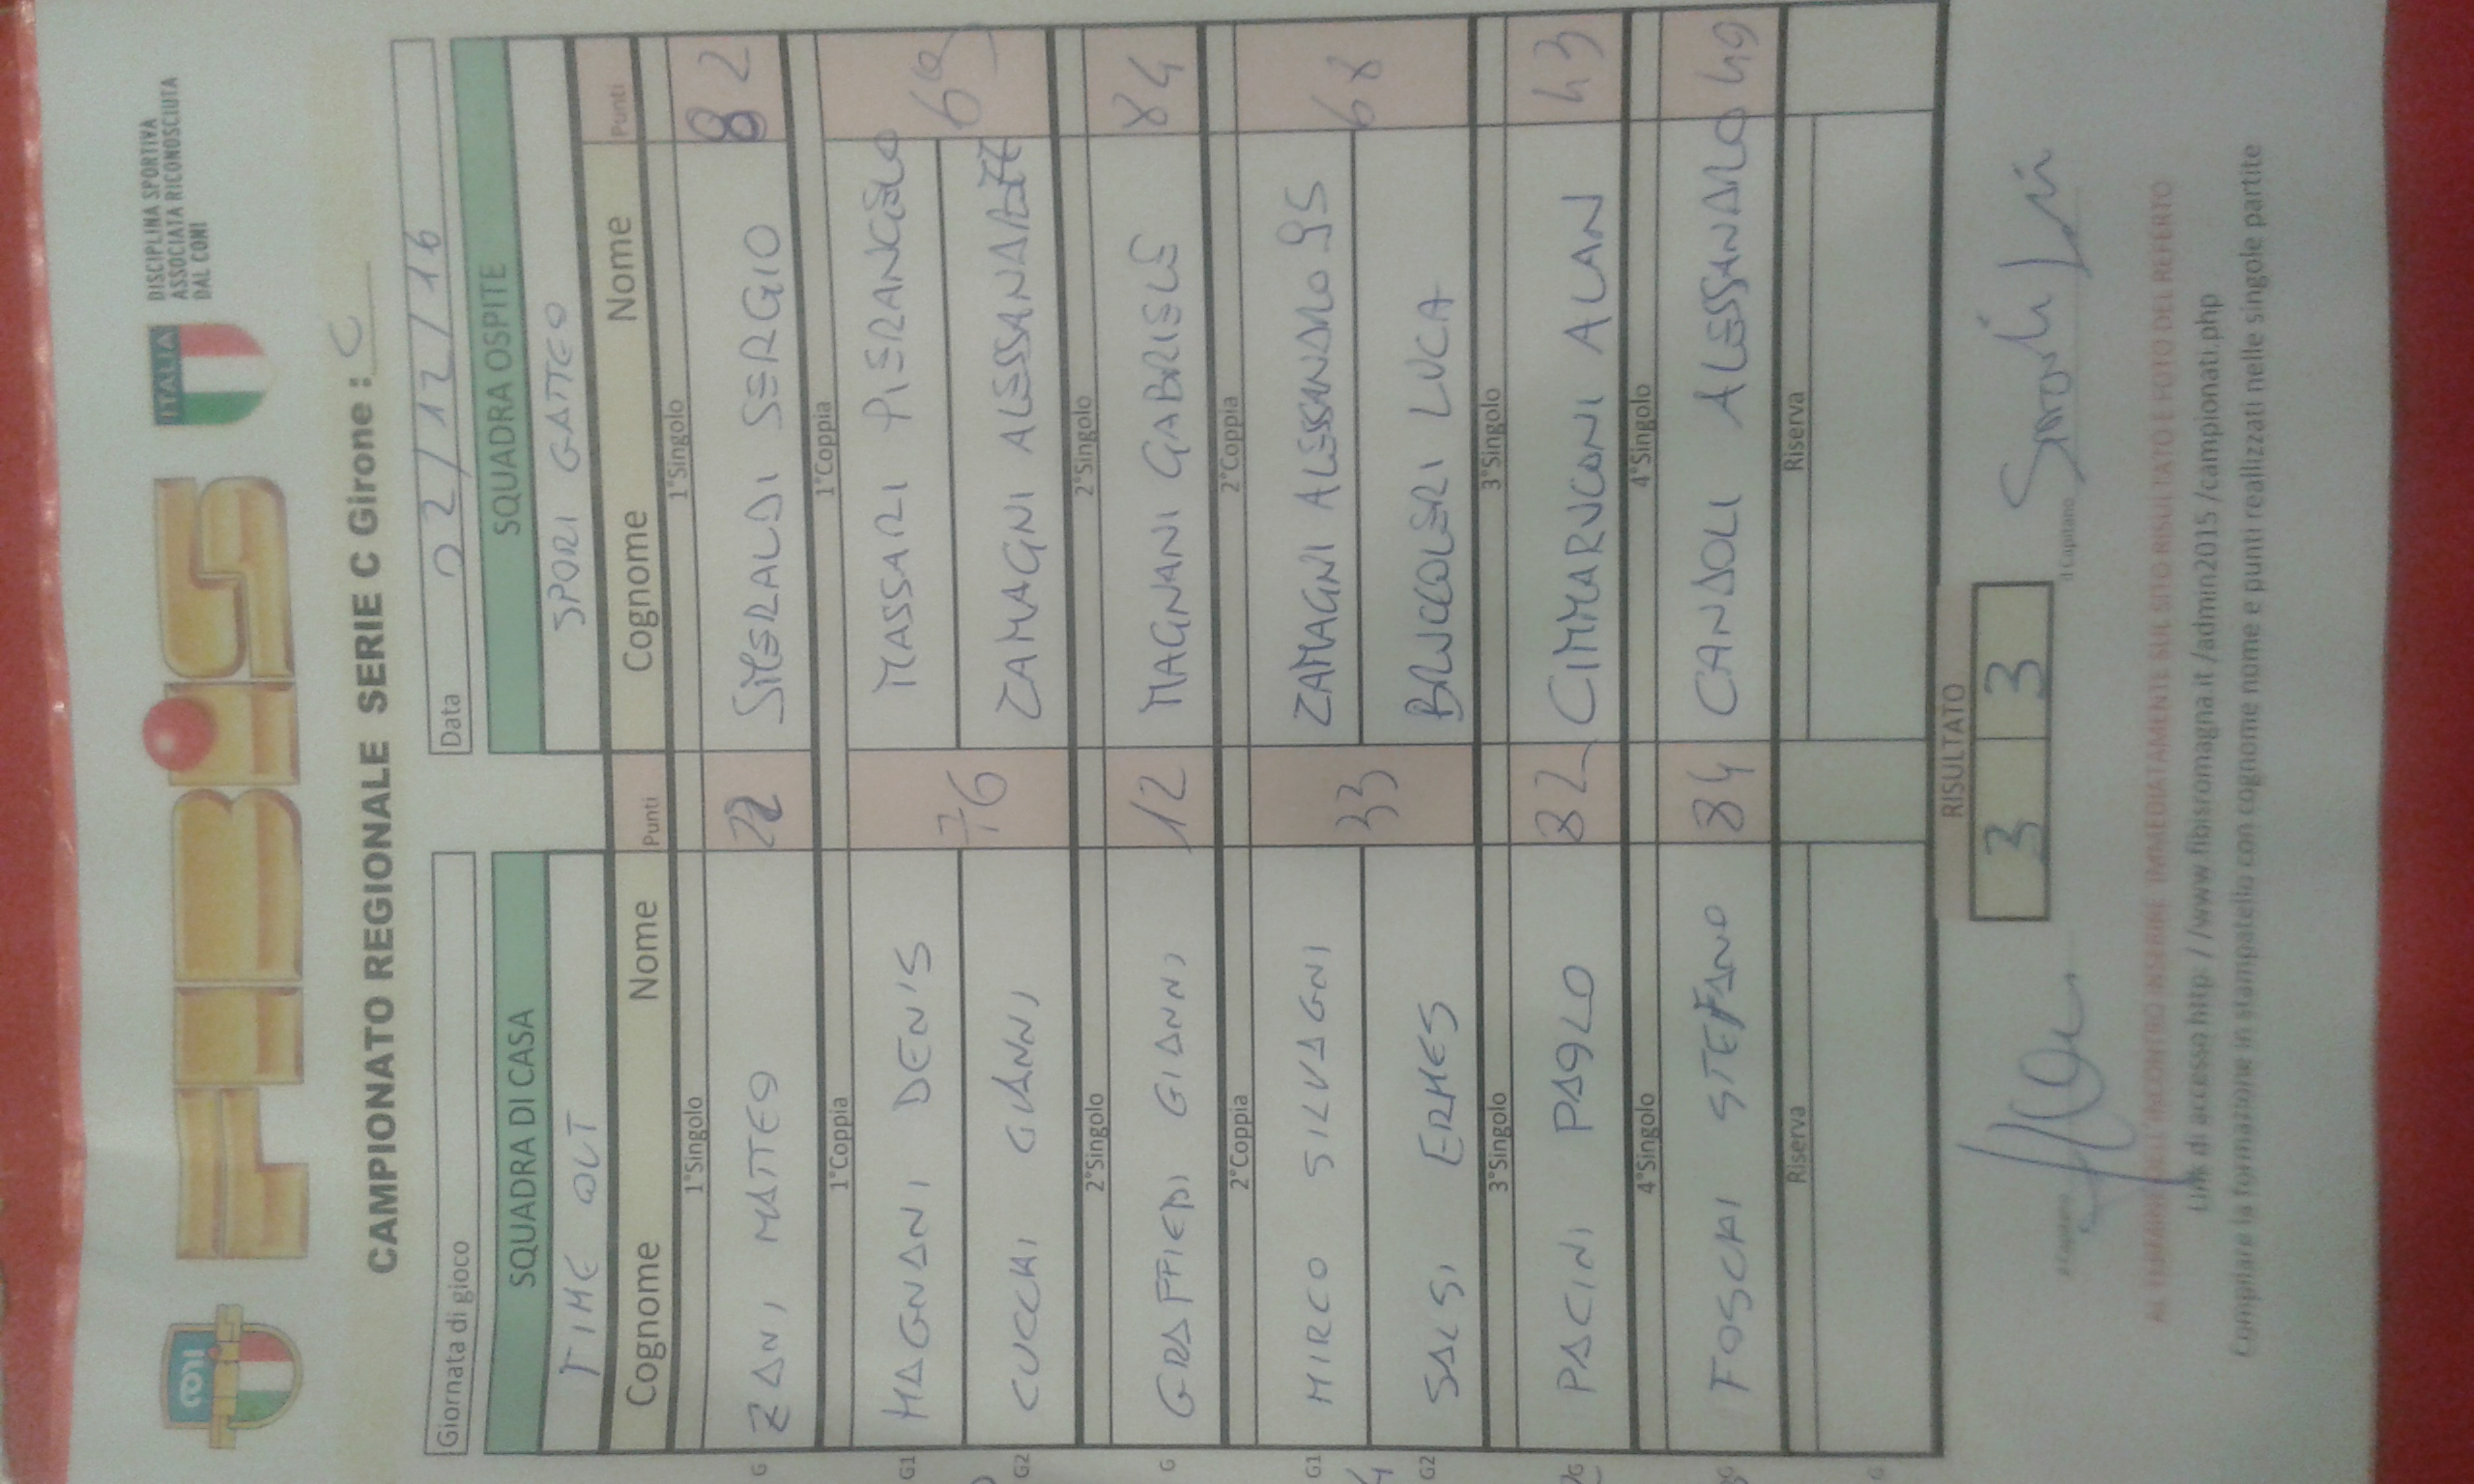 CONI
FIBiS
ITALIA
DISCIPLINA SPORTIVA
ASSOCIATA RICONOSCIUTA
DAL CONI
CAMPIONATO REGIONALE SERIE C Girone : C
Giornata di gioco
Data 02/12/16
SQUADRA DI CASA SQUADRA OSPITE
TIME OUT SPORI GATTEO
Cognome Nome Punti Cognome Nome Punti
1°Singolo 1°Singolo
G ZANI MATTEO SMERALDI SERGIO 82
1°Coppia 1°Coppia
G1 MAGNANI DENIS 76 MASSARI PIERANGELO
G2 CUCCHI GIANNI ZAMAGNI
2°Singolo 2°Singolo
G GRAFFIEDI GIANNI 12 MAGNANI GABRIELE 84
2°Coppia 2°Coppia
G1 MIRCO SILVAGNI 33 ZAMAGNI ALESSANDRO 95 68
G2 SALSI ERMES BRUCCOLERI LUCA
3°Singolo 3°Singolo
G PACINI PAOLO 82 CIMMARUCONI ALAN 43
4°Singolo 4°Singolo
G FOSCHI STEFANO 84 CANDOLI ALESSANDRO 49
Riserva Riserva
G
RISULTATO
3 3
Il Capitano Il Capitano
AL TERMINE DELL'INCONTRO INSERIRE IMMEDIATAMENTE SUL SITO RISULTATO E FOTO DEL REFERTO
Link di accesso http://www.fibisromagna.it/admin2015/campionati.php
Compilare la formazione in stampatello con cognome nome e punti realizzati nelle singole partite